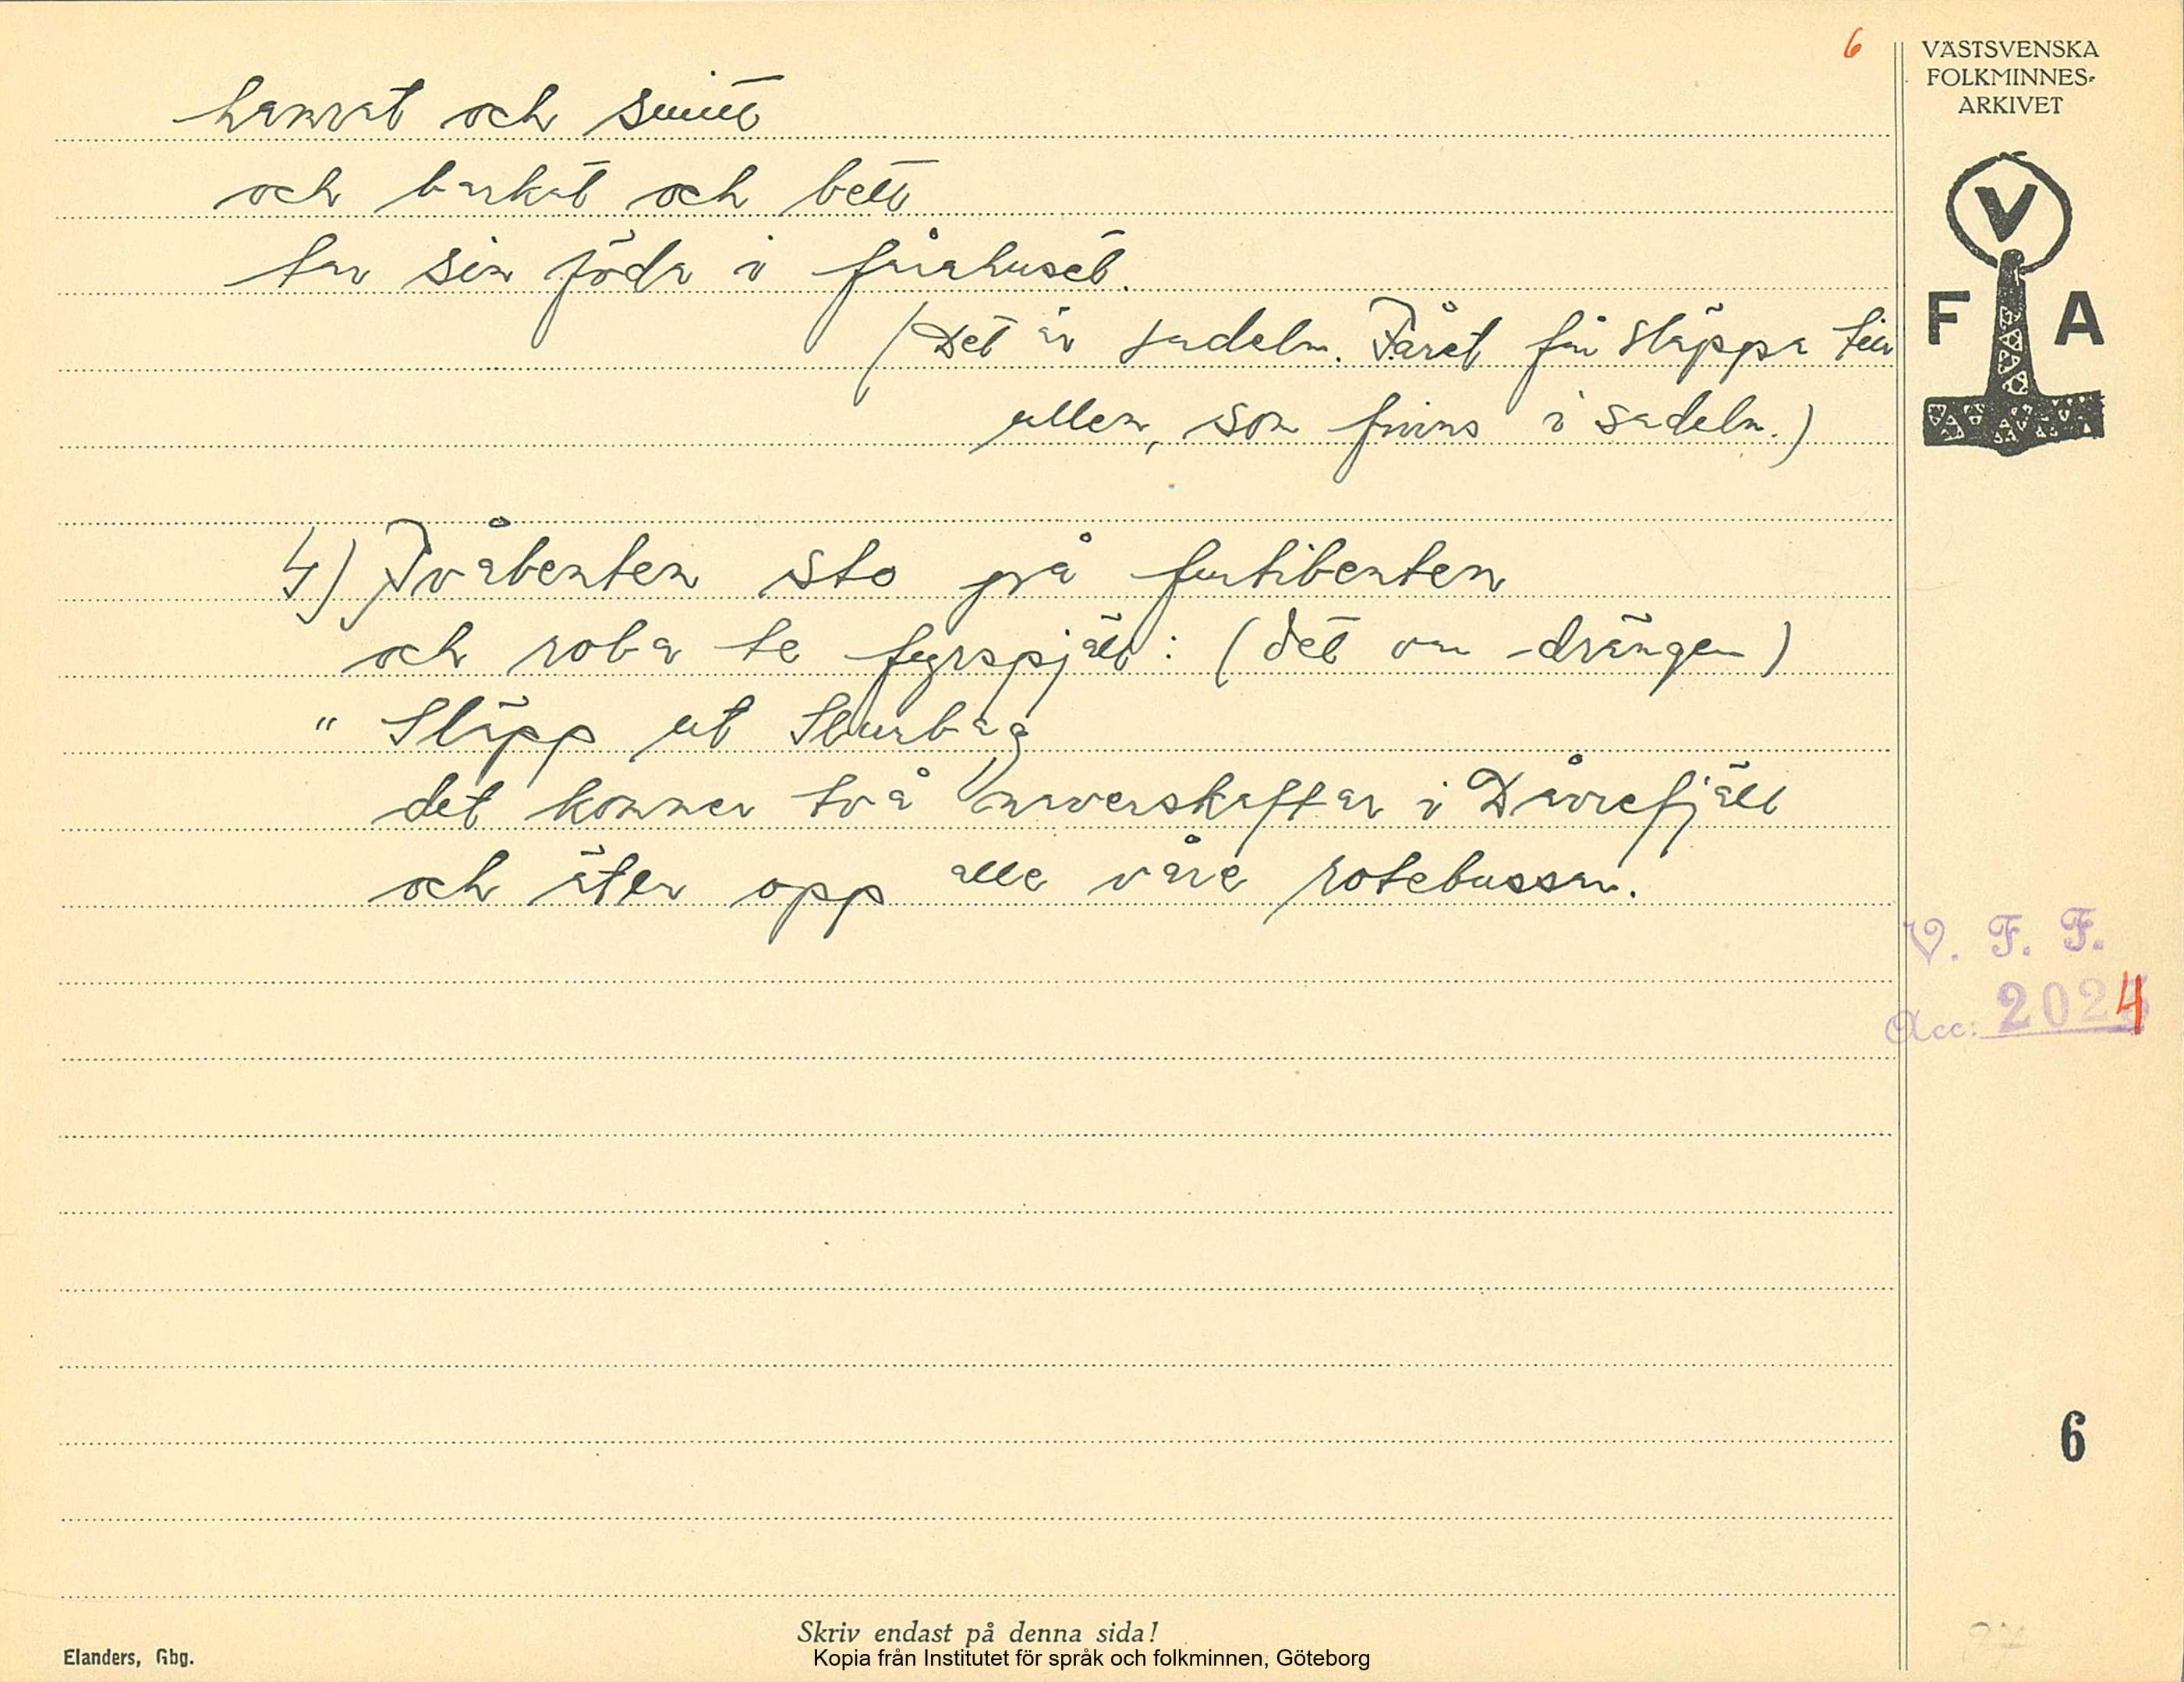 6
VÄSTSVENSKA
FOLKMINNES-
ARKIVET
V
F A
hamrat och smitt
och barkat och bett
tar sin föda i fårahuset.
(Det är sadeln. Fåret får släppa till
ullen, som finns i sadeln.)
4) Tvåbenten sto på furtibenten
och roba te fyrspjäll: (det va drängen)
" Släpp ut Sturbag
det kommer två naverskaftar i Dåvrefjäll
och äter opp alle våre rotebussar.
V. F. F.
Acc: 2024
6
Skriv endast på denna sida!
Elanders, Gbg.
Kopia från Institutet för språk och folkminnen, Göteborg